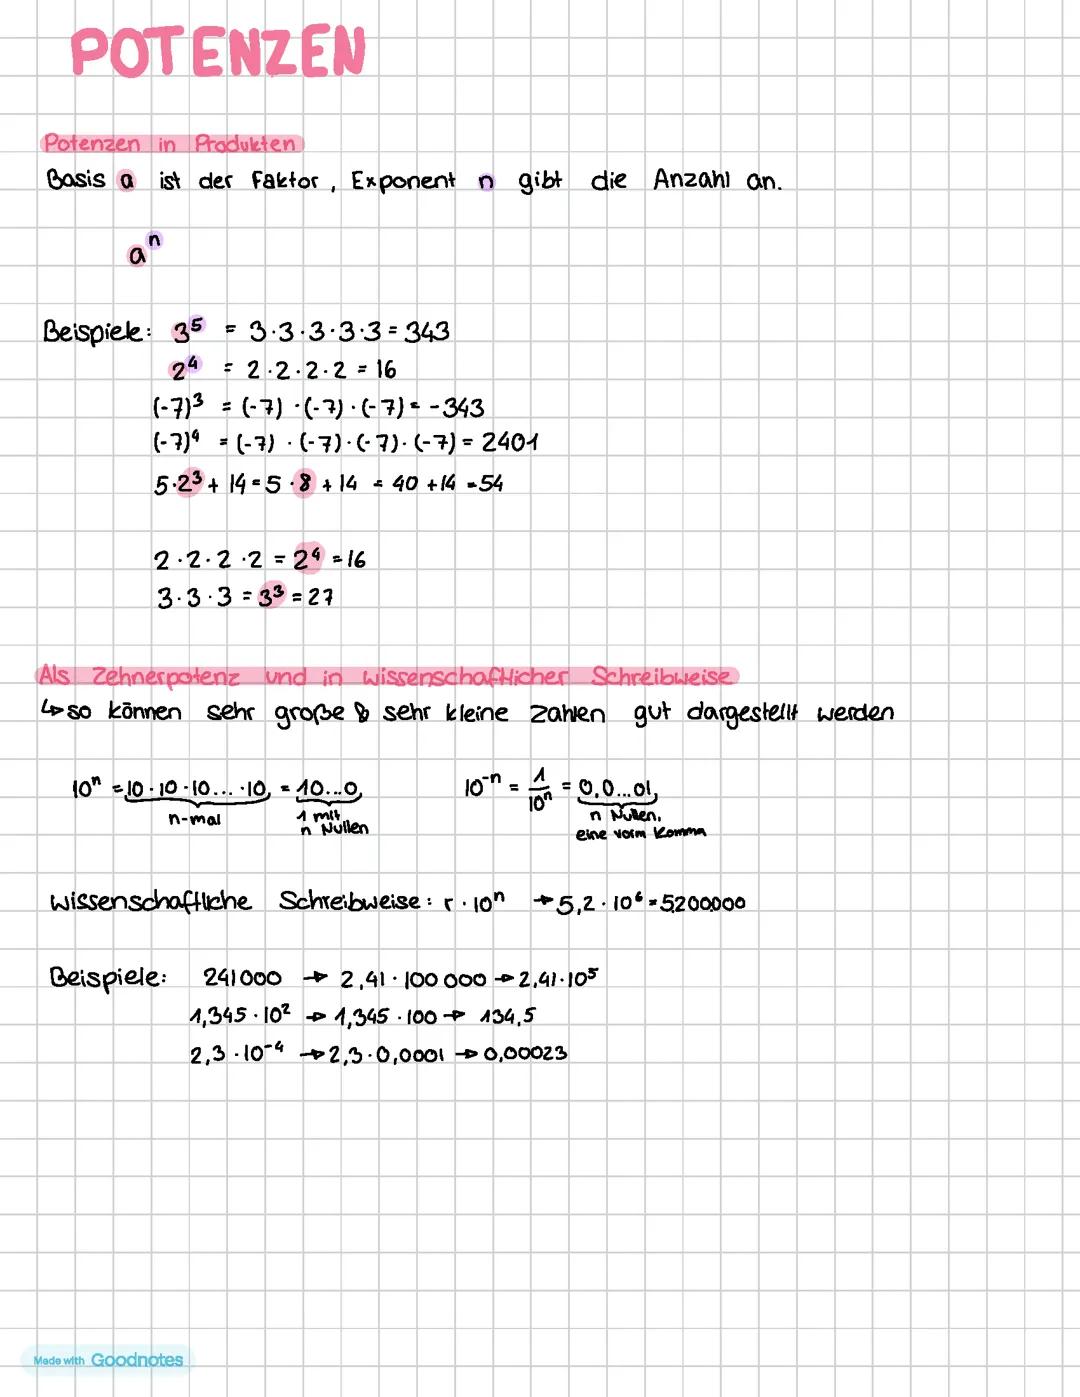 POTENZEN
Potenzen in Produkten
Basis a ist der Faktor, Exponent n gibt die Anzahl an.
aⁿ
Beispiele: 3⁵ = 3·3·3·3·3 = 343
2⁴ = 2·2·2·2 = 16
(-7)³ = (-7)·(-7)·(-7) = -343
(-7)⁴ = (-7)·(-7)·(-7)·(-7) = 2401
5·2³ + 14 = 5·8 + 14 = 40 + 14 = 54
2·2·2·2 = 2⁴ = 16
3·3·3 = 3³ = 27
Als Zehnerpotenz und in wissenschaftlicher Schreibweise
↳ so können sehr große & sehr kleine Zahlen gut dargestellt werden
10ⁿ = 10·10·10...·10 = 10...0 10⁻ⁿ = 1/10ⁿ = 0,0...01
n-mal 1 mit n Nullen n Nullen, eine vorm Komma
wissenschaftliche Schreibweise: r·10ⁿ → 5,2·10⁶ = 5200000
Beispiele: 241000 → 2,41·100 000 → 2,41·10⁵
1,345·10² → 1,345·100 → 134,5
2,3·10⁻⁴ → 2,3·0,0001 → 0,00023
Made with Goodnotes